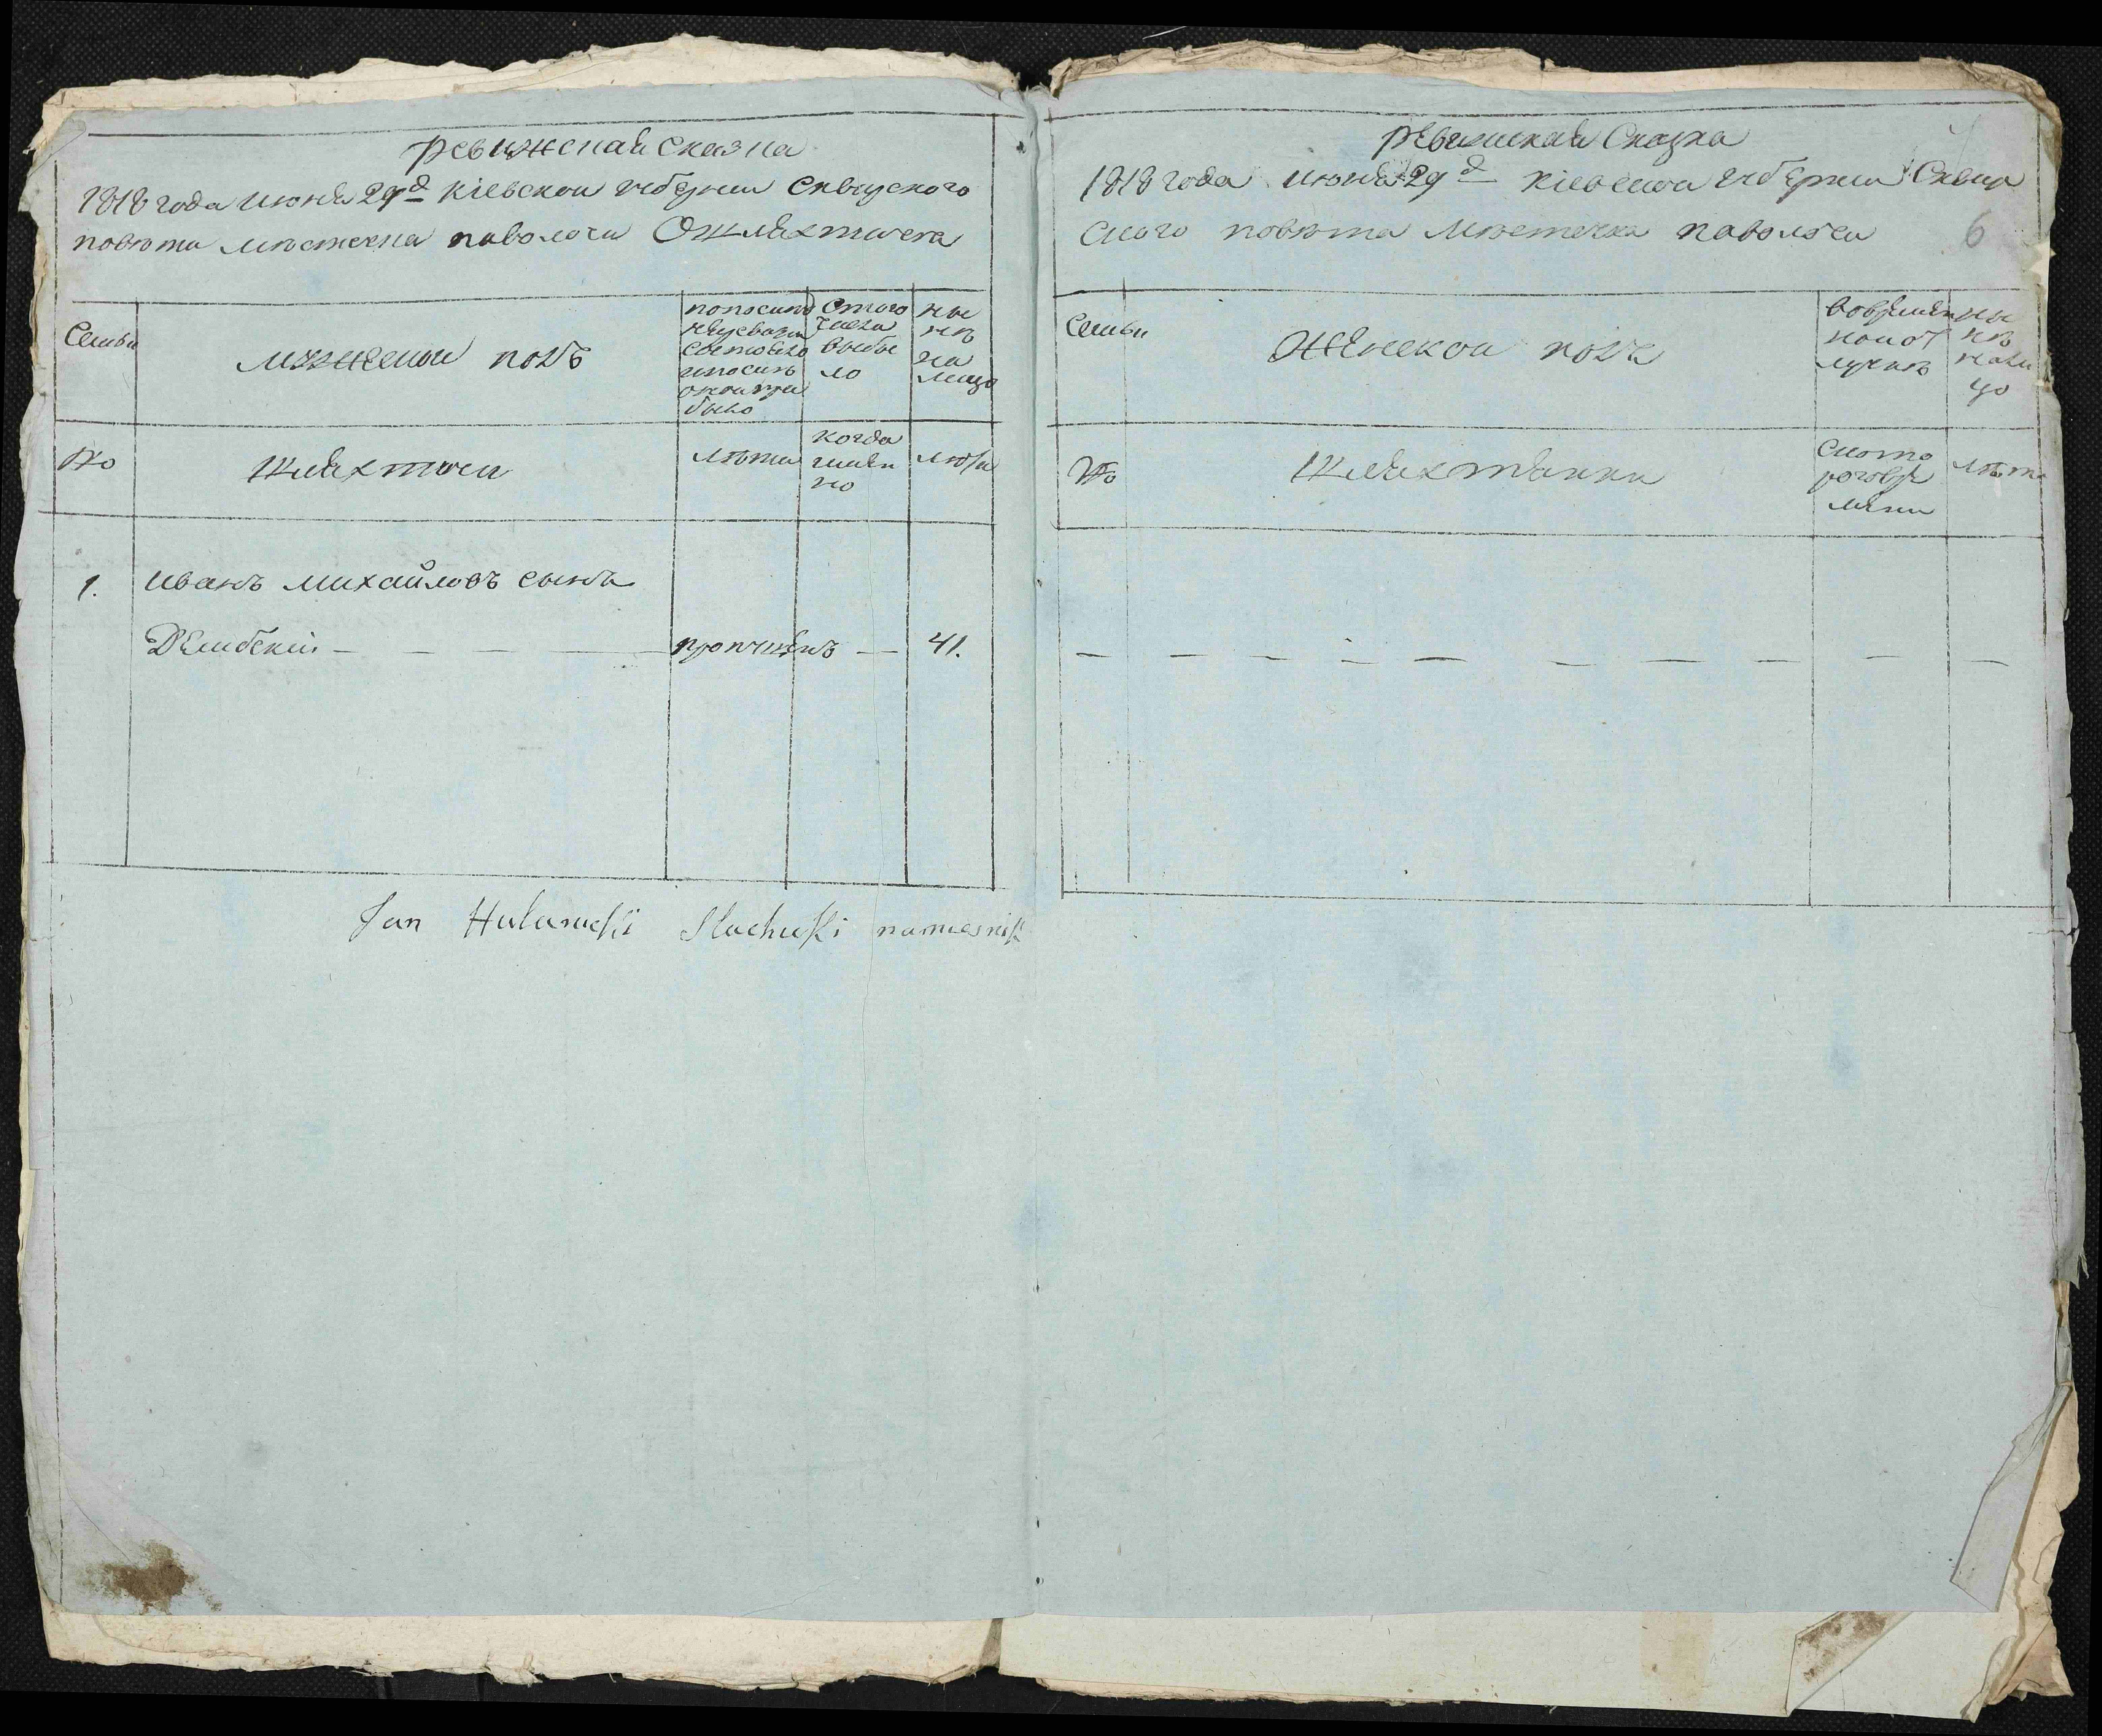 Ревижская Сказка
1818 года июня 29д Кіевской губерніи Сквирского
повѣта мѣстечка паволочи О шляхтичеха
Семьи
мужеской полъ
попослед
ней ревизіи
состояло
ипослѣ
оной при
было
Стого
числа
выбы
ло
ны
нѣ
на
лицо
№
Шляхтичи
лѣта
когда
имян
но
лѣта
1. Иванъ михайловъ сынъ
Дембскій — пропущенъ — 41.
Jan Hulanicki Słuchski namiesnik
Ревижская Сказка
1818 года июня 29д Кіевской губерніи Сквир
ского повѣта мѣстечка паволочи
6
Семьи
Женской полъ
вовремян
ной от
лучкѣ
ны
нѣ
нали
цо
№
Шляхтянки
Ското
роговре
мяни
лѣта